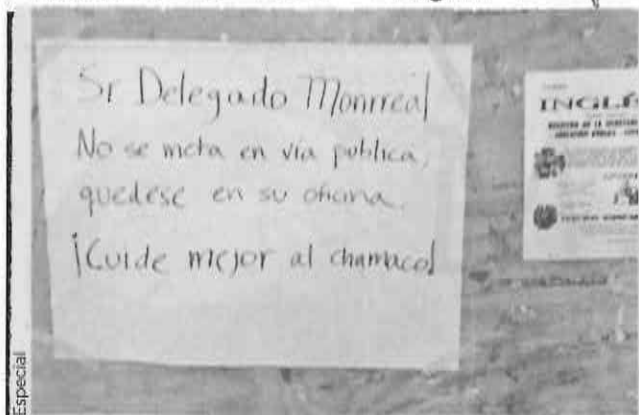 Sr Delegado Monrreal
No se meta en vía pública,
quedese en su oficina.
¡Cuide mejor al chamaco!
INGLÉ
Especial